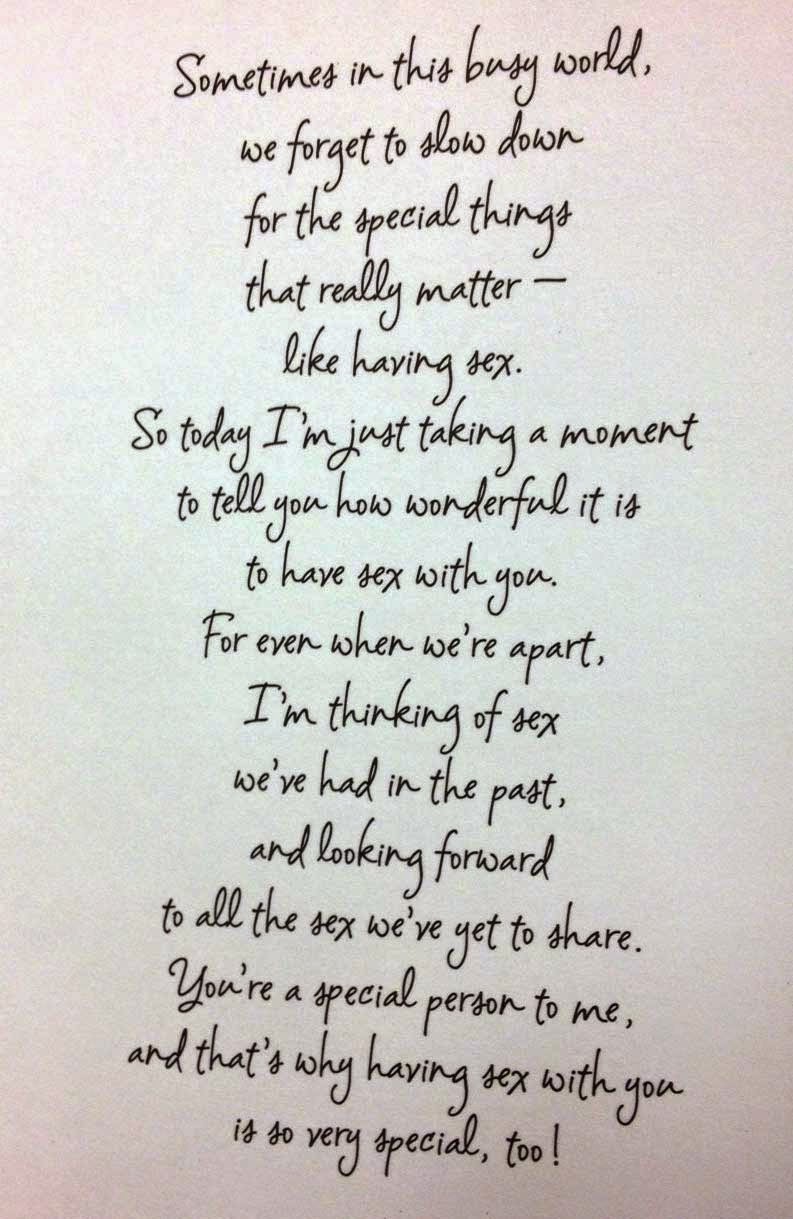 Sometimes in this busy world,
we forget to slow down
for the special things
that really matter —
like having sex.
So today I'm just taking a moment
to tell you how wonderful it is
to have sex with you.
For even when we're apart,
I'm thinking of sex
we've had in the past,
and looking forward
to all the sex we've yet to share.
You're a special person to me,
and that's why having sex with you
is so very special, too!